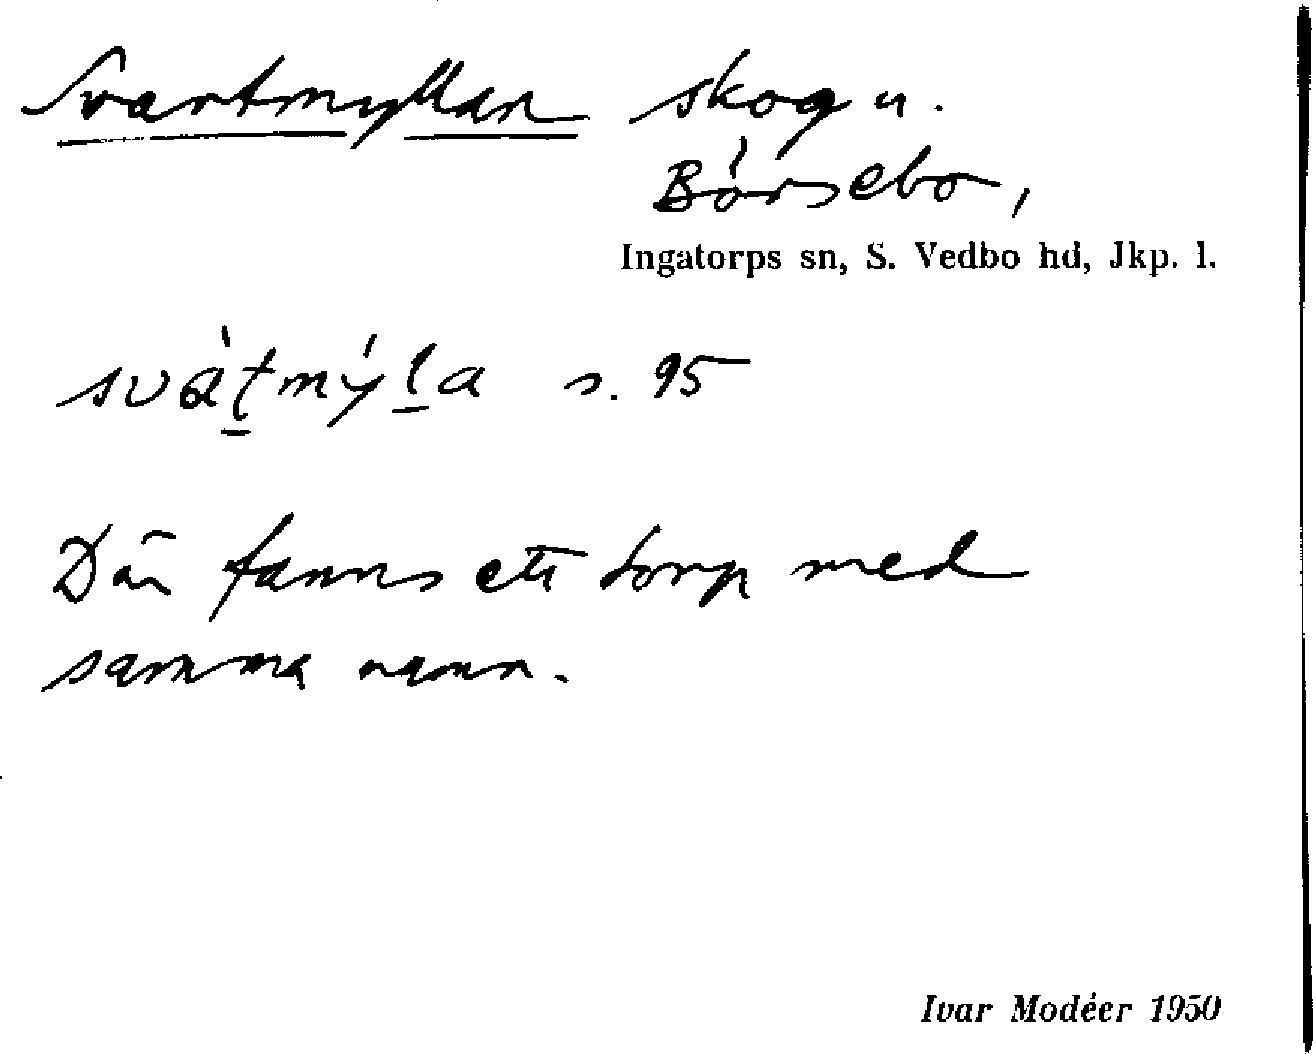 Svartmyllan skog u.
Börsebo,
Ingatorps sn, S. Vedbo hd, Jkp. l.
svàt̠mýl̠a s. 95
Där fanns ett torp med
samma namn.
Ivar Modéer 1950